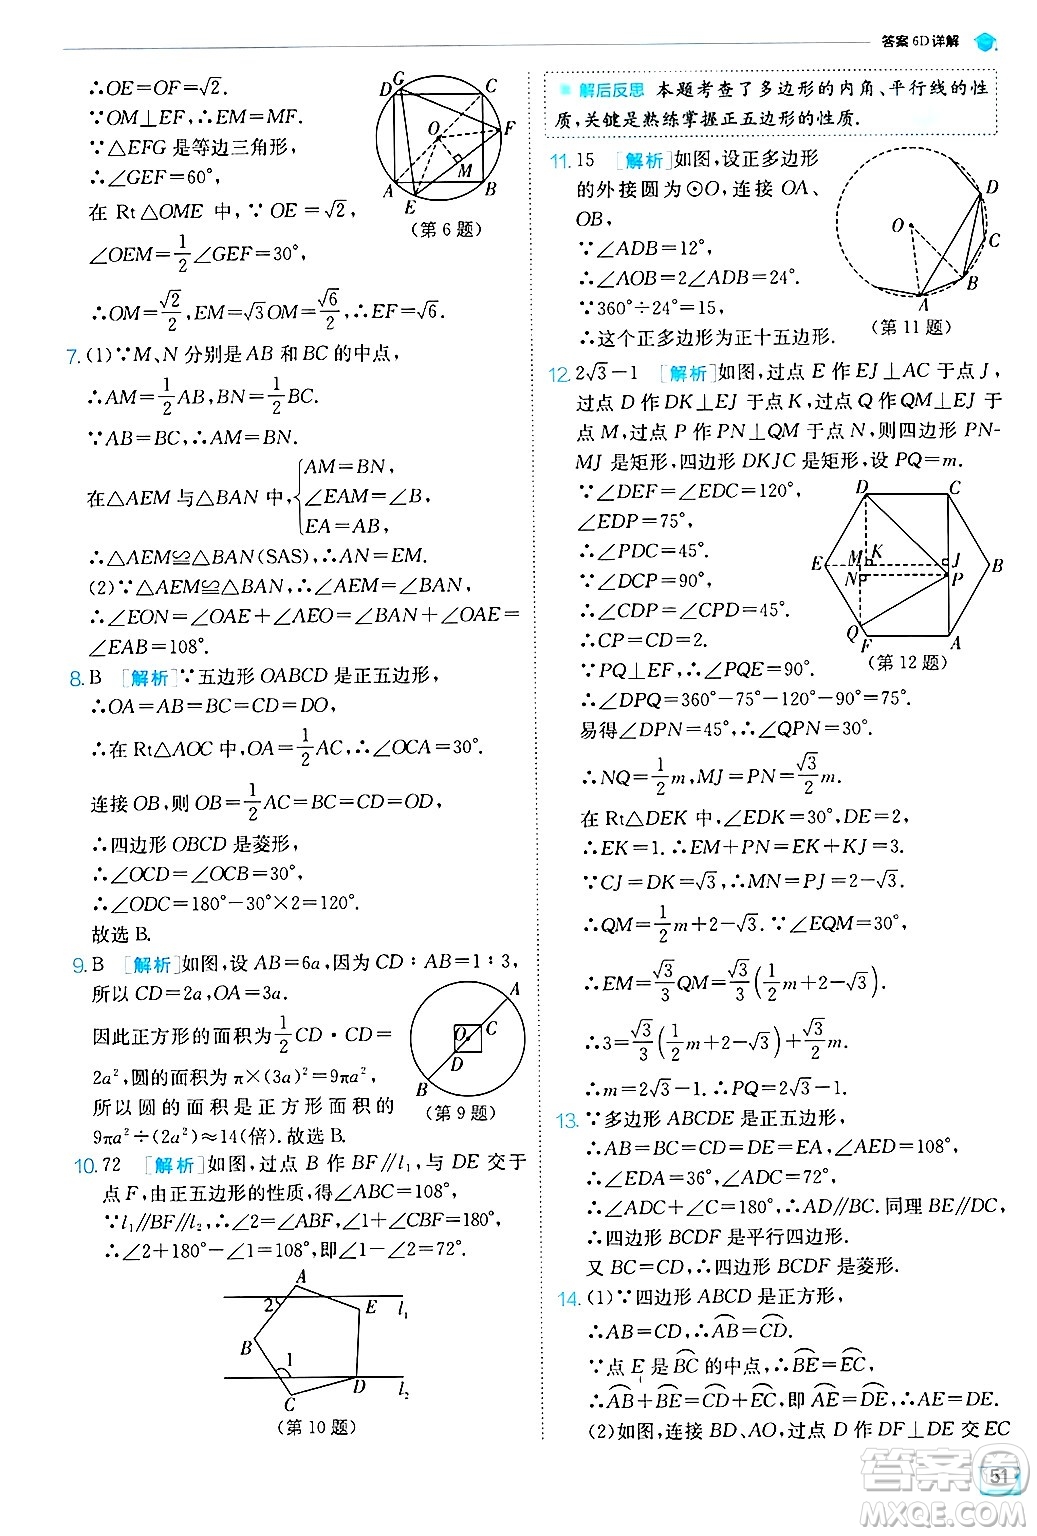 答案 6D 详解
∴OE=OF=√2.
∵OM⊥EF,∴OM=EM.
∵△EFG 是等边三角形,
∴∠GEF=60°,
在 Rt△OME 中,∵OE=√2,
∠OEM=1/2∠GEF=30°,
∴OM=√2/2,EM=√3OM=√6/2,∴EF=√6.
(第 6 题)
7. (1)∵M、N 分别是 AB 和 BC 的中点,
∴AM=1/2AB,BN=1/2BC.
∵AB=BC,∴AM=BN.
在△AEM 与△BAN 中,{AM=BN,
∠EAM=∠B,
EA=AB,
∴△AEM≌△BAN(SAS),∴AN=EM.
(2)∵△AEM≌△BAN,∴∠AEM=∠BAN,
∴∠EON=∠OAE+∠AEO=∠BAN+∠OAE=
∠EAB=108°.
8. B [解析]∵五边形 OABCD 是正五边形,
∴OA=AB=BC=CD=DO,
∴在 Rt△AOC 中,OA=1/2AC,∴∠OCA=30°.
连接 OB,则 OB=1/2AC=BC=CD=OD,
∴四边形 OBCD 是菱形,
∴∠OCD=∠OCB=30°,
∴∠ODC=180°-30°×2=120°.
故选 B.
9. B [解析]如图,设 AB=6a,因为 CD∶AB=1∶3,
所以 CD=2a,OA=3a.
因此正方形的面积为1/2CD·CD=
2a²,圆的面积为 π×(3a)²=9πa²,
所以圆的面积是正方形面积的
9πa²÷(2a²)≈14(倍).故选 B.
(第 9 题)
10. 72 [解析]如图,过点 B 作 BF∥l₁,与 DE 交于
点 F,由正五边形的性质,得∠ABC=108°,
∵l₁∥BF∥l₂,∴∠2=∠ABF,∠1+∠CBF=180°,
∴∠2+180°-∠1=108°,即∠1-∠2=72°.
(第 10 题)
解后反思 本题考查了多边形的内角、平行线的性
质,关键是熟练掌握正五边形的性质.
11. 15 [解析]如图,设正多边形
的外接圆为⊙O,连接 OA、
OB,
∵∠ADB=12°,
∴∠AOB=2∠ADB=24°.
∵360°÷24°=15,
∴这个正多边形为正十五边形.
(第 11 题)
12. 2√3-1 [解析]如图,过点 E 作 EJ⊥AC 于点 J,
过点 D 作 DK⊥EJ 于点 K,过点 Q 作 QM⊥EJ 于
点 M,过点 P 作 PN⊥QM 于点 N,则四边形 PN-
MJ 是矩形,四边形 DKJC 是矩形,设 PQ=m.
∵∠DEF=∠EDC=120°,
∠EDP=75°,
∴∠PDC=45°.
∵∠DCP=90°,
∴∠CDP=∠CPD=45°.
∴CP=CD=2.
∵PQ⊥EF,∴∠PQE=90°,
∴∠DPQ=360°-75°-120°-90°=75°.
易得∠DPN=45°,∴∠QPN=30°.
∴NQ=1/2m,MJ=PN=√3/2m.
(第 12 题)
在 Rt△DEK 中,∠EDK=30°,DE=2,
∴EK=1.∴EM+PN=EK+KJ=3.
∵CJ=DK=√3,∴MN=PJ=2-√3.
∴QM=1/2m+2-√3.∵∠EQM=30°,
∴EM=√3/3QM=√3/3(1/2m+2-√3).
∴3=√3/3(1/2m+2-√3)+√3/2m.
∴m=2√3-1.∴PQ=2√3-1.
13. ∵多边形 ABCDE 是正五边形,
∴AB=BC=CD=DE=EA,∠AED=108°,
∴∠EDA=36°,∠ADC=72°,
∴∠ADC+∠C=180°,∴AD∥BC.同理 BE∥DC,
∴四边形 BCDF 是平行四边形.
又 BC=CD,∴四边形 BCDF 是菱形.
14. (1)∵四边形 ABCD 是正方形,
∴AB=CD,∴AB⌒=CD⌒.
∵点 E 是BC⌒的中点,∴BE⌒=EC⌒,
∴AB⌒+BE⌒=CD⌒+EC⌒,即AE⌒=DE⌒,∴AE=DE.
(2)如图,连接 BD、AO,过点 D 作 DF⊥DE 交 EC
51
答案圈
MXQE.COM